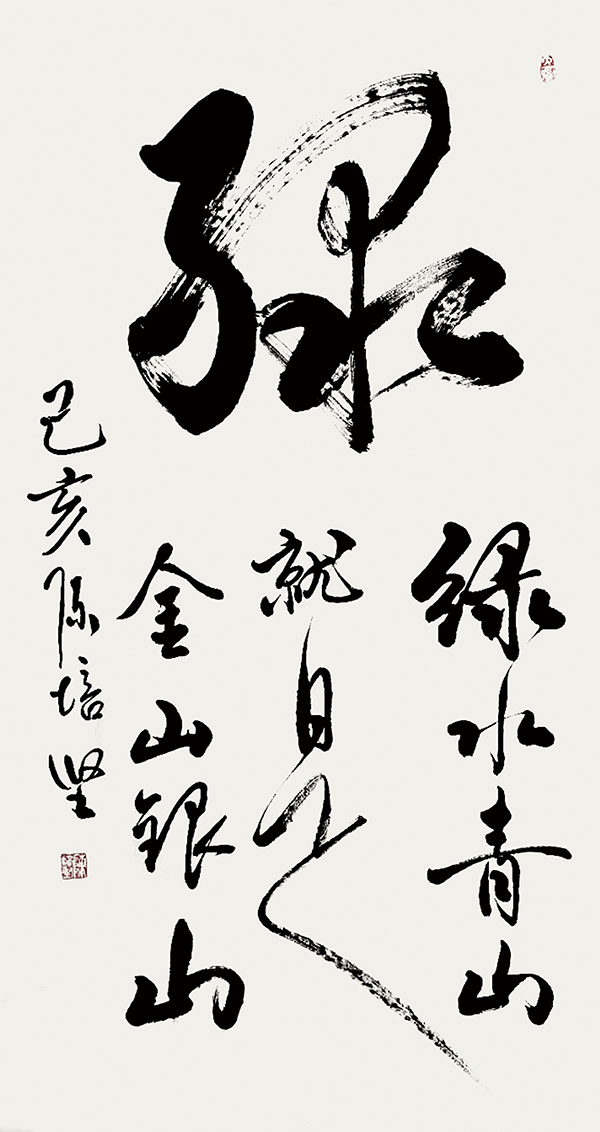 绿
绿水青山
就是
金山银山
己亥陈培坚